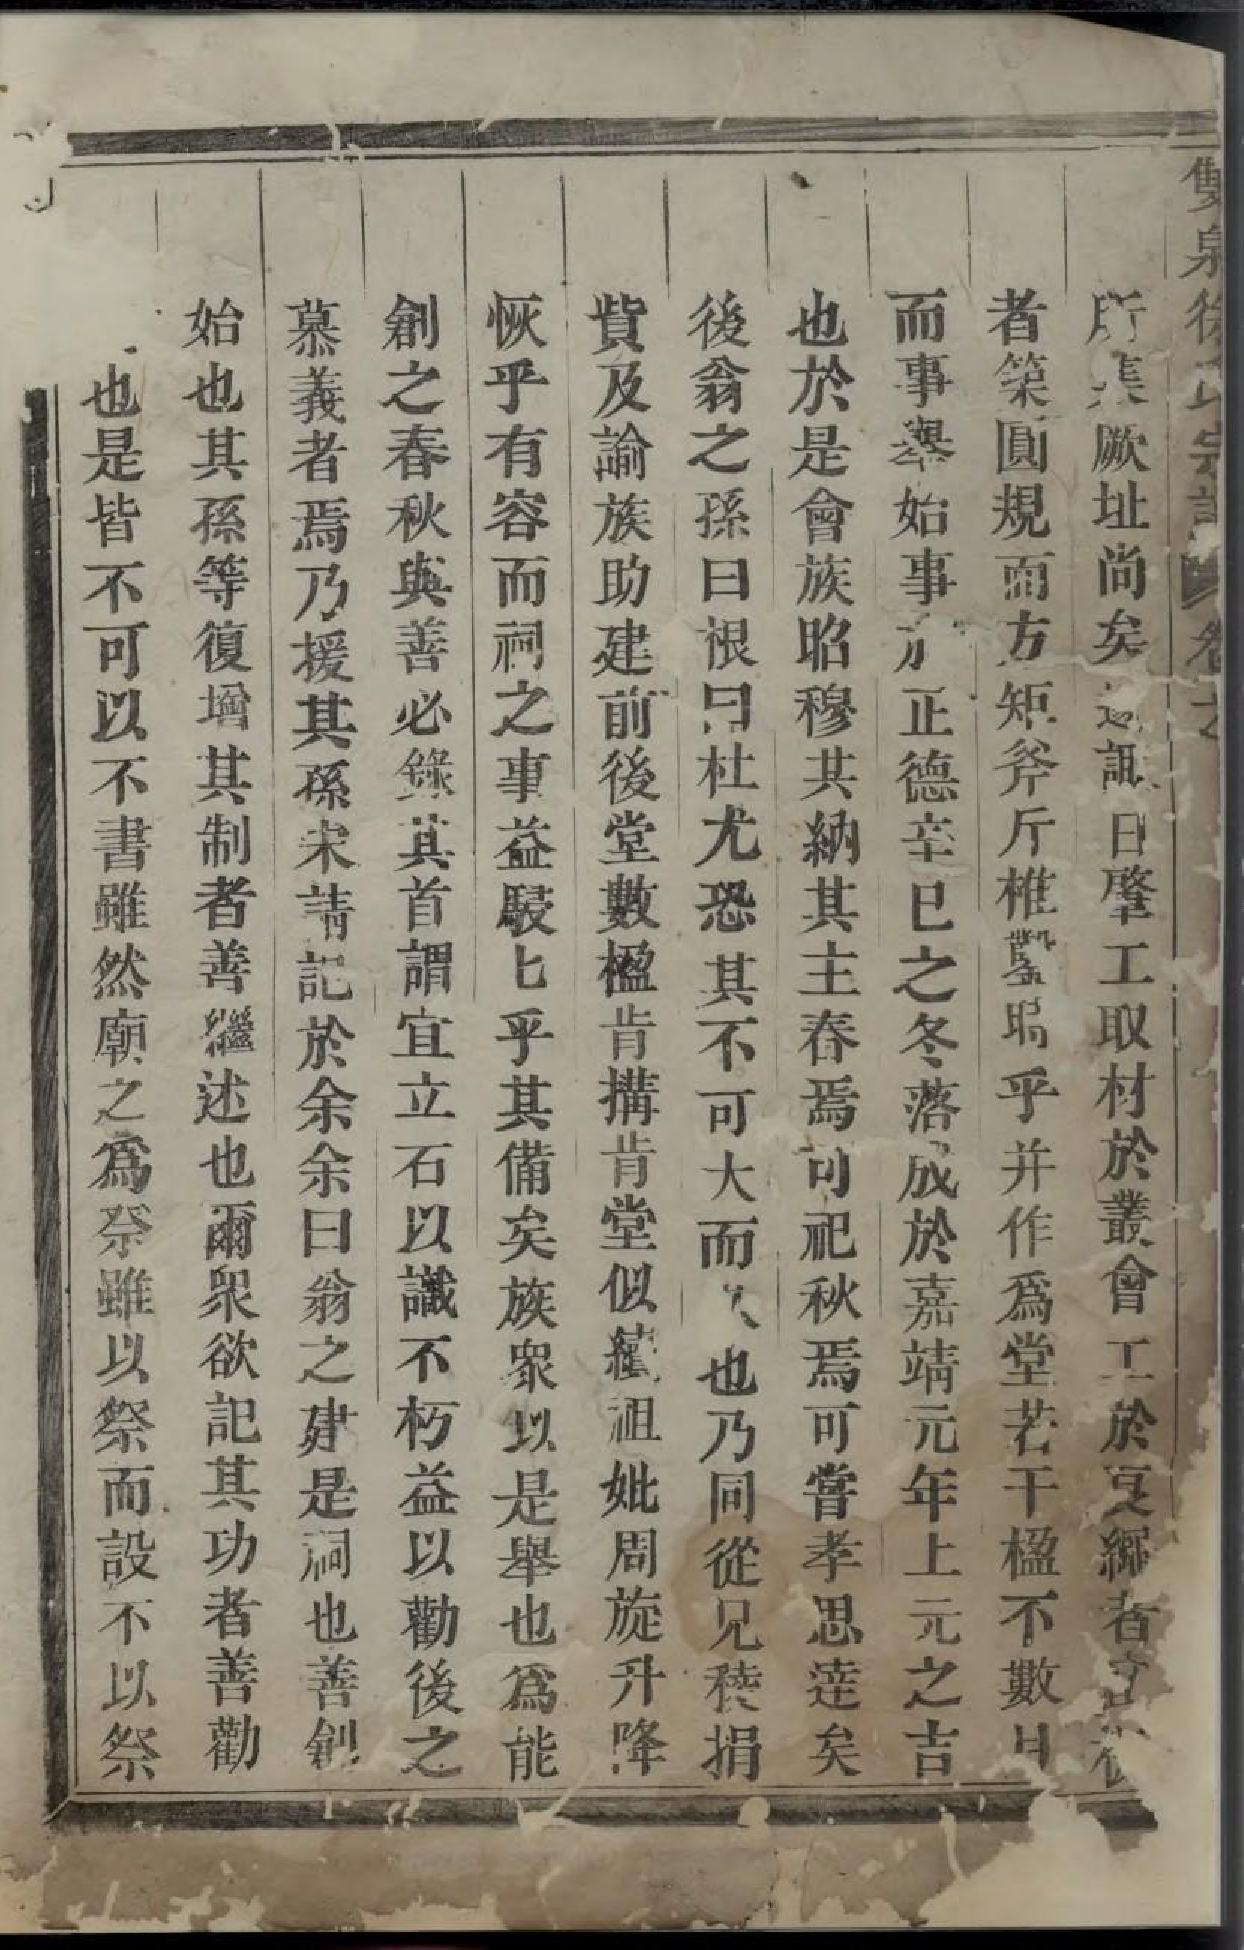 雙泉徐氏宗譜 卷之
所集厥址尚矣諏日肇工取材於叢會工於叟繩者
者築圓規而方矩斧斤椎鑿塢乎并作為堂若干楹不數月
而事舉始事於正德辛巳之冬落成於嘉靖元年上元之吉
也於是會族昭穆共納其主春焉可祀秋焉可嘗孝思達矣
後翁之孫曰恨曰杜尤恐其不可大而久也乃同從兄稜捐
貲及論族助建前後堂數楹肯搆肯堂似續祖妣周旋升降
恢乎有容而祠之事益駸匕乎其備矣族衆以是舉也為能
創之春秋與善必錄其首謂宜立石以識不朽益以勸後之
慕義者焉乃援其孫求請記於余余曰翁之建是祠也善創
始也其孫等復增其制者善繼述也爾衆欲記其功者善勸
也是皆不可以不書雖然廟之為祭雖以祭而設不以祭